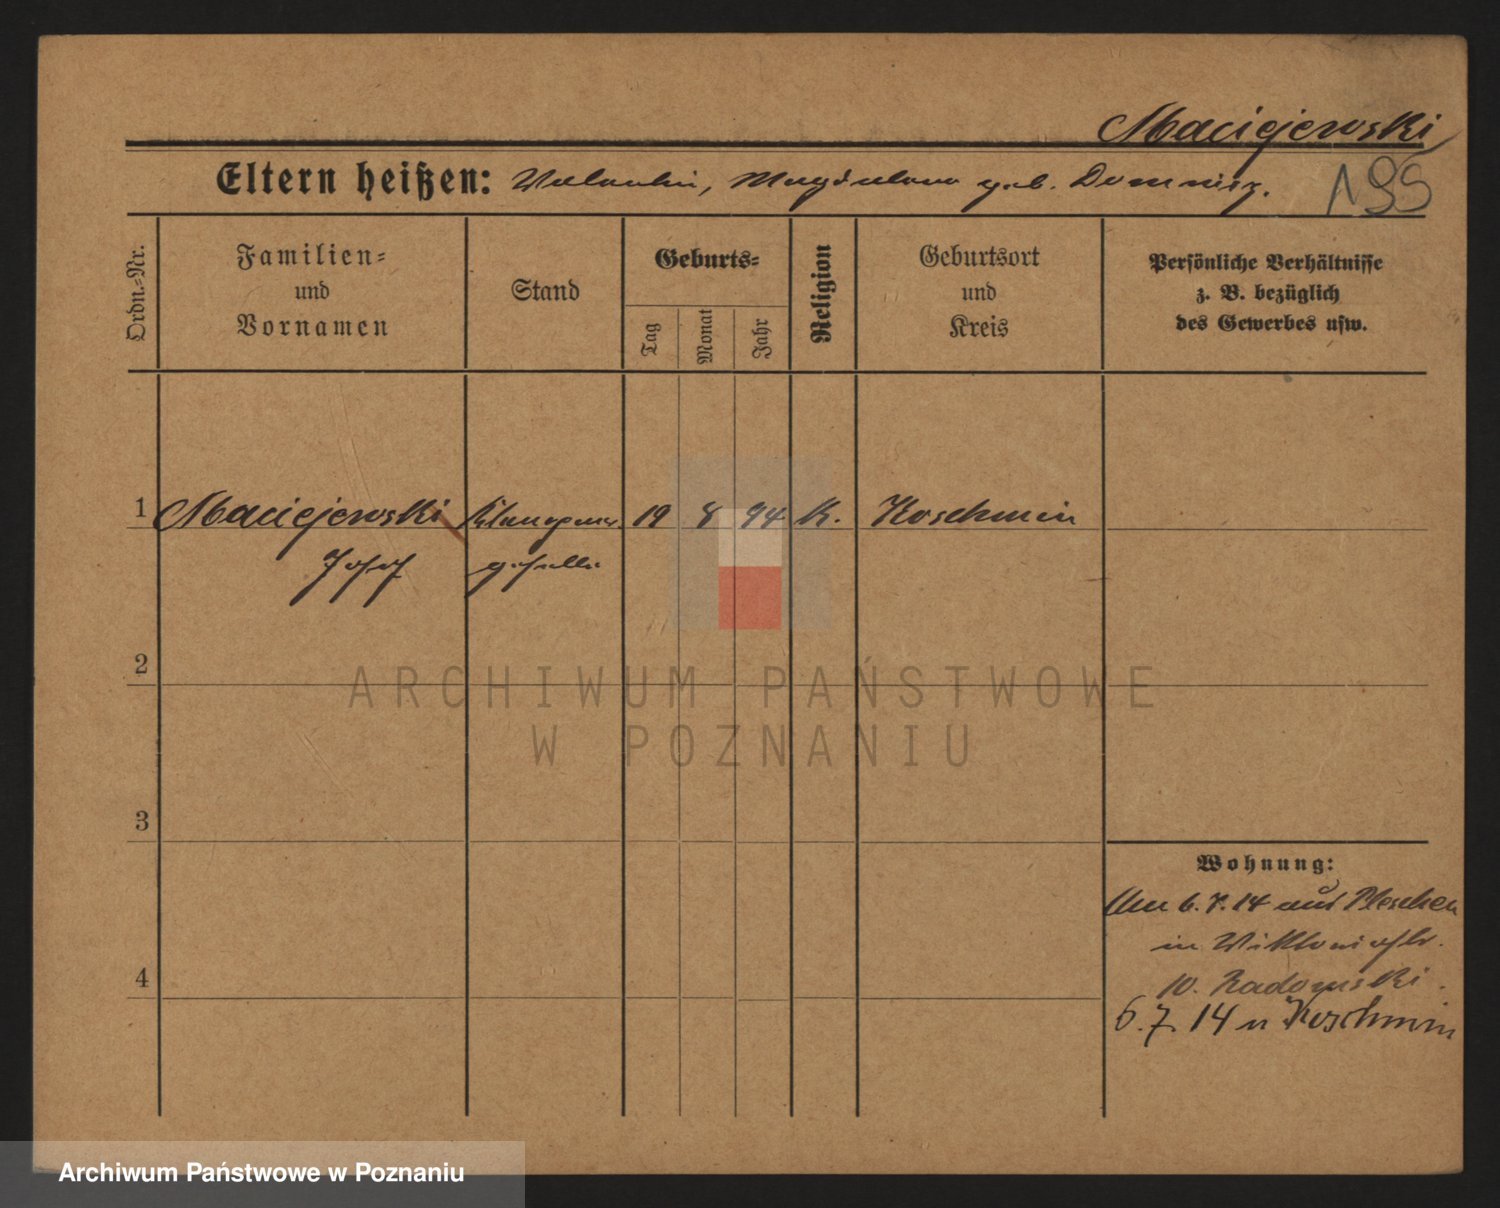 Maciejewski
Eltern heißen: Valentin, Magdalena geb.
195
Ordn.-Nr.
Familien-
und
Vornamen
Stand
Geburts-
Tag
Monat
Jahr
Religion
Geburtsort
und
Kreis
Persönliche Verhältnisse
z. B. bezüglich
des Gewerbes usw.
1 Maciejewski 19 8 94 K. Koschmin
Josef geselle
2
ARCHIWUM PAŃSTWOWE
W POZNANIU
3
Wohnung:
6. 7. 14 aus Pleschen
in Viktoriastr.
10. Radomski.
4
6. 7. 14 n Koschmin
Archiwum Państwowe w Poznaniu